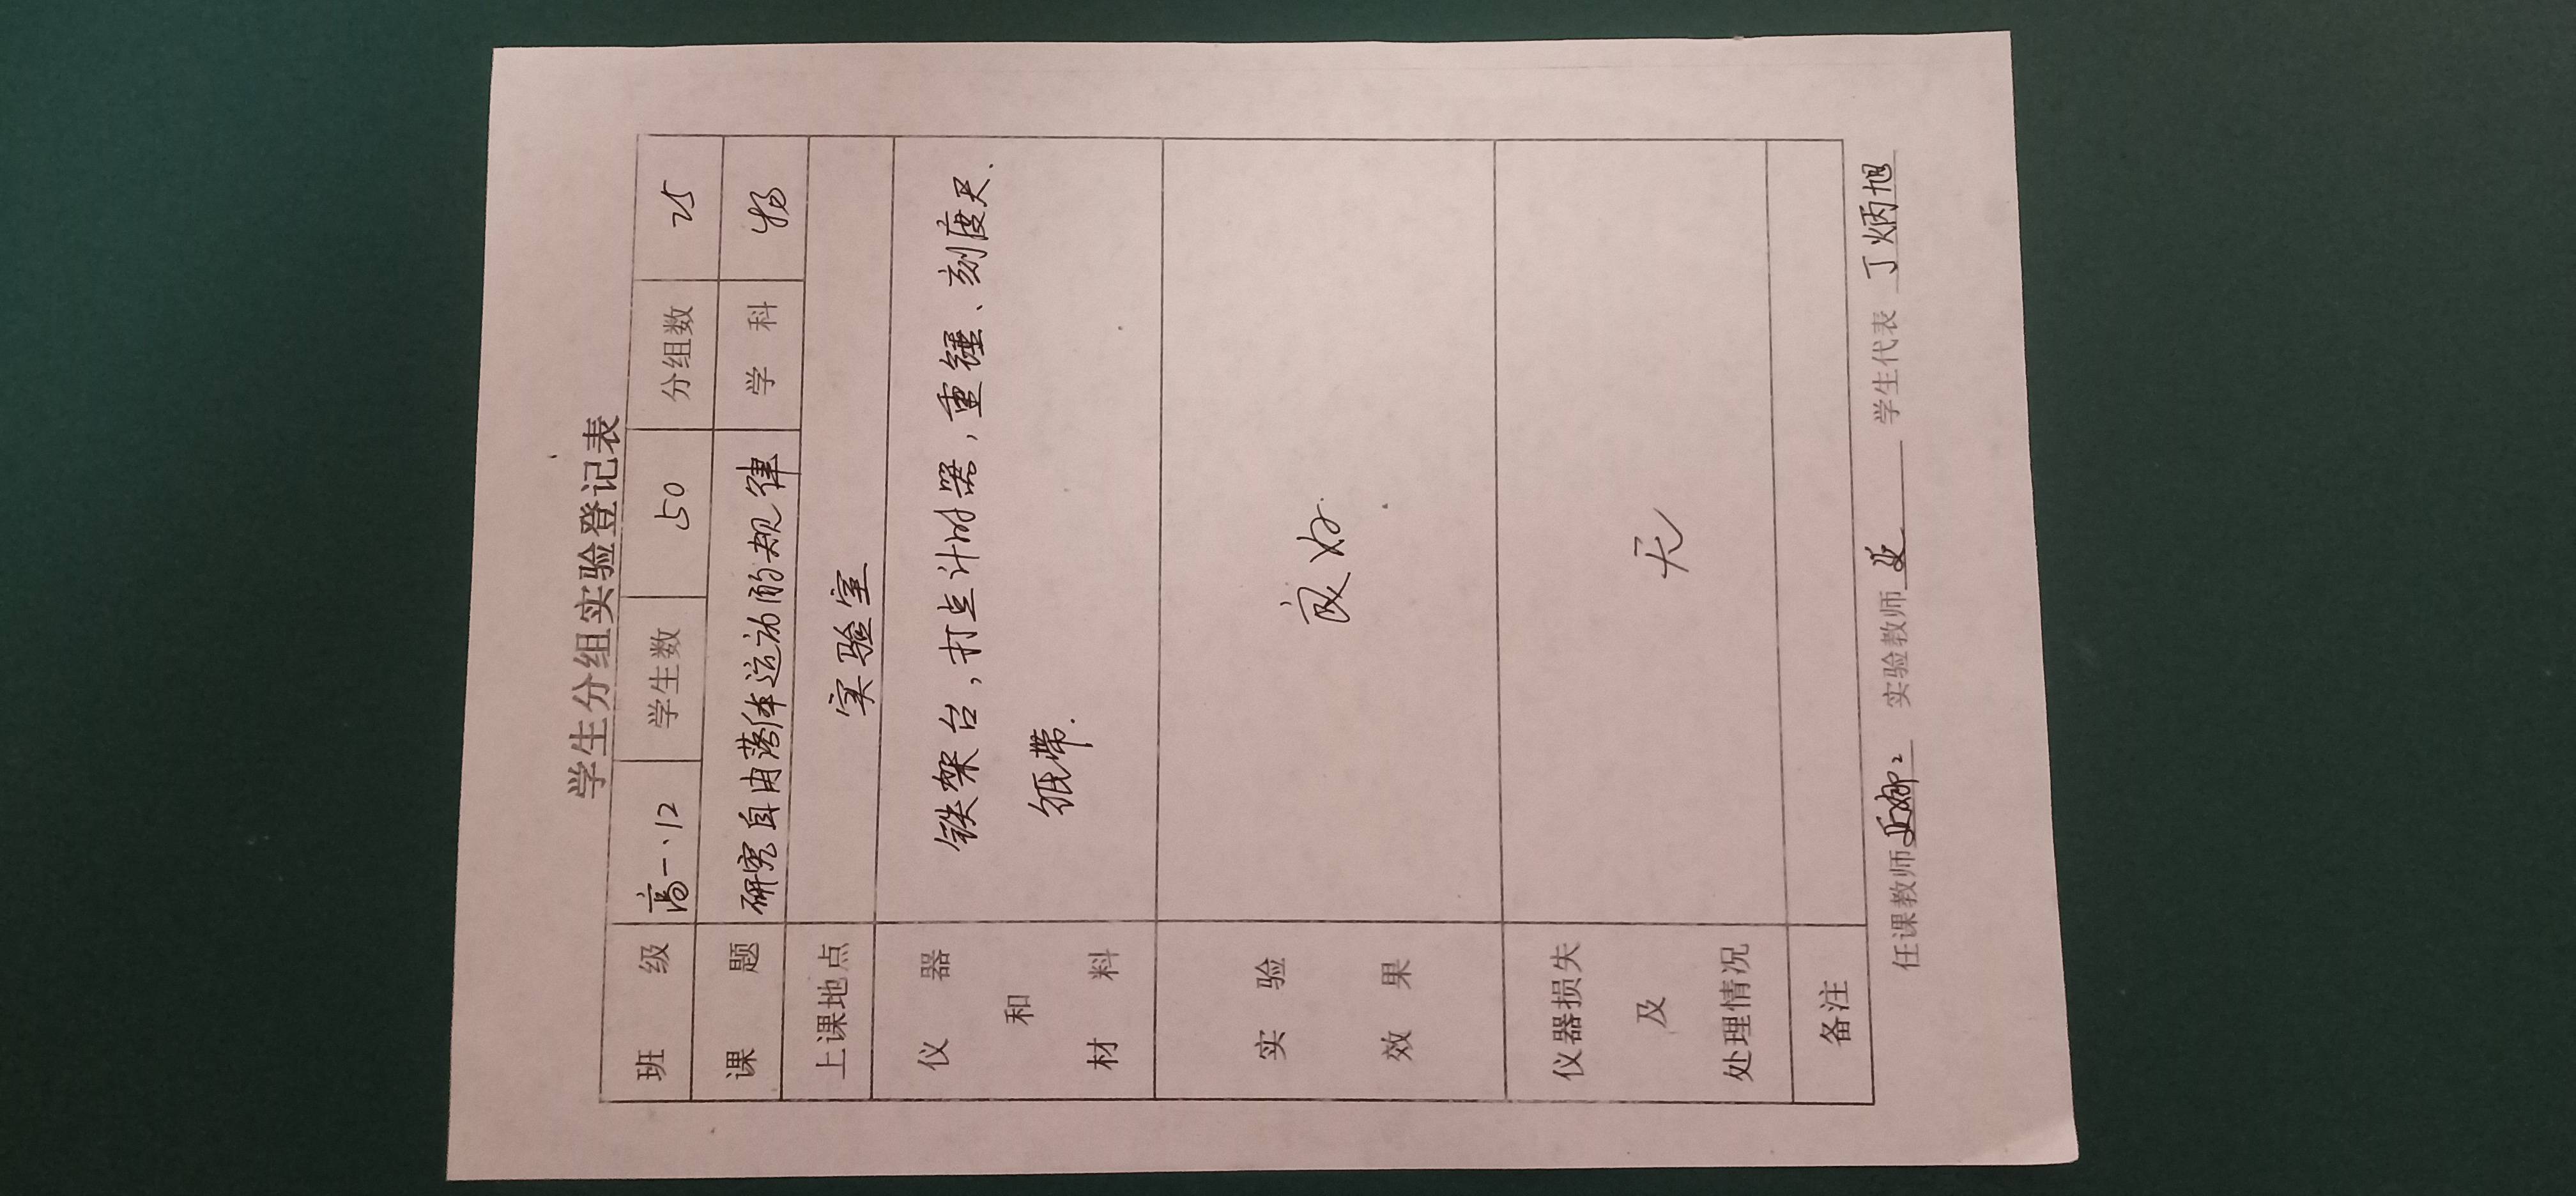 学生分组实验登记表
班 级 高一、12 学生数 50 分组数 25
课 题 研究自由落体运动的规律 学 科 物
上课地点 实验室
仪 器 和 材 料 铁架台,打点计时器,重锤、刻度尺、
纸带.
实 验 效 果 良好.
仪器损失 及 处理情况 无
备注
任课教师 实验教师 学生代表 丁炳旭